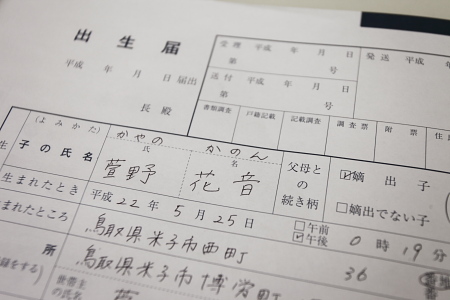 出生届
平成 年 月 日 届出
長 殿
受理 平成 年 月 日
第 号
送付 平成 年 月 日
第 号
発送 平成 年
書類調査 戸籍記載 記載調査 調査票 附票 住
(よみかた) かやの かのん
子の氏名 氏 名
萱野 花音
父母との続き柄
☑嫡出子
□嫡出でない子
生
生まれたとき 平成 22年 5月 25日 □午前 ☑午後 0時19分
まれたところ 鳥取県米子市西町 36
所 鳥取県米子市博労町
録をする)
世帯主
の氏名